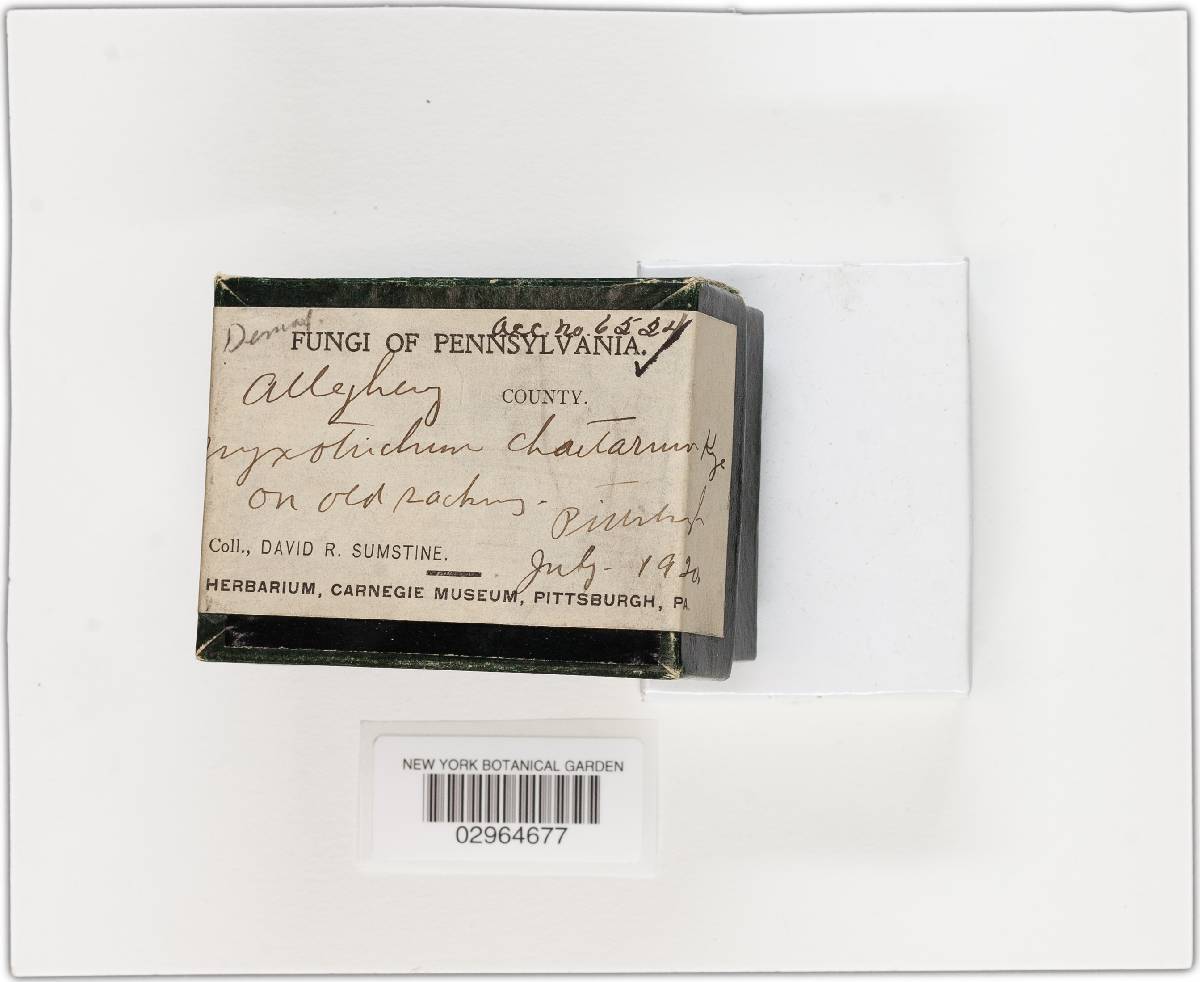 Demat.
acc. no. 6524
FUNGI OF PENNSYLVANIA.
Allegheny COUNTY.
myxotrichum chartarum Kze
on old sacking. Pittsburgh
Coll., DAVID R. SUMSTINE. July - 1920
HERBARIUM, CARNEGIE MUSEUM, PITTSBURGH, PA.
NEW YORK BOTANICAL GARDEN
02964677